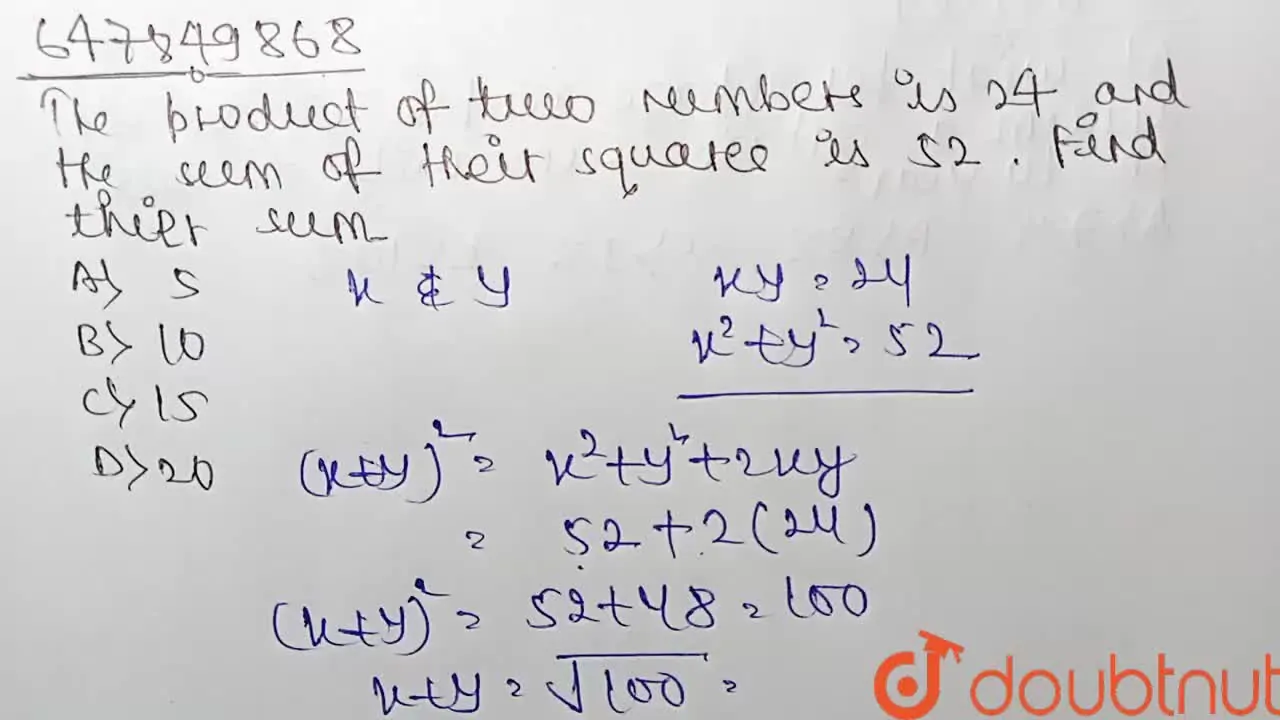 647849868
The product of two numbers is 24 and
the sum of their squares is 52. Find
thier sum
A> 5
x & y
xy = 24
B> 10
x²+y² = 52
C> 15
D> 20
(x+y)² = x²+y²+2xy
= 52+2(24)
(x+y)² = 52+48 = 100
x+y = √100 =
doubtnut